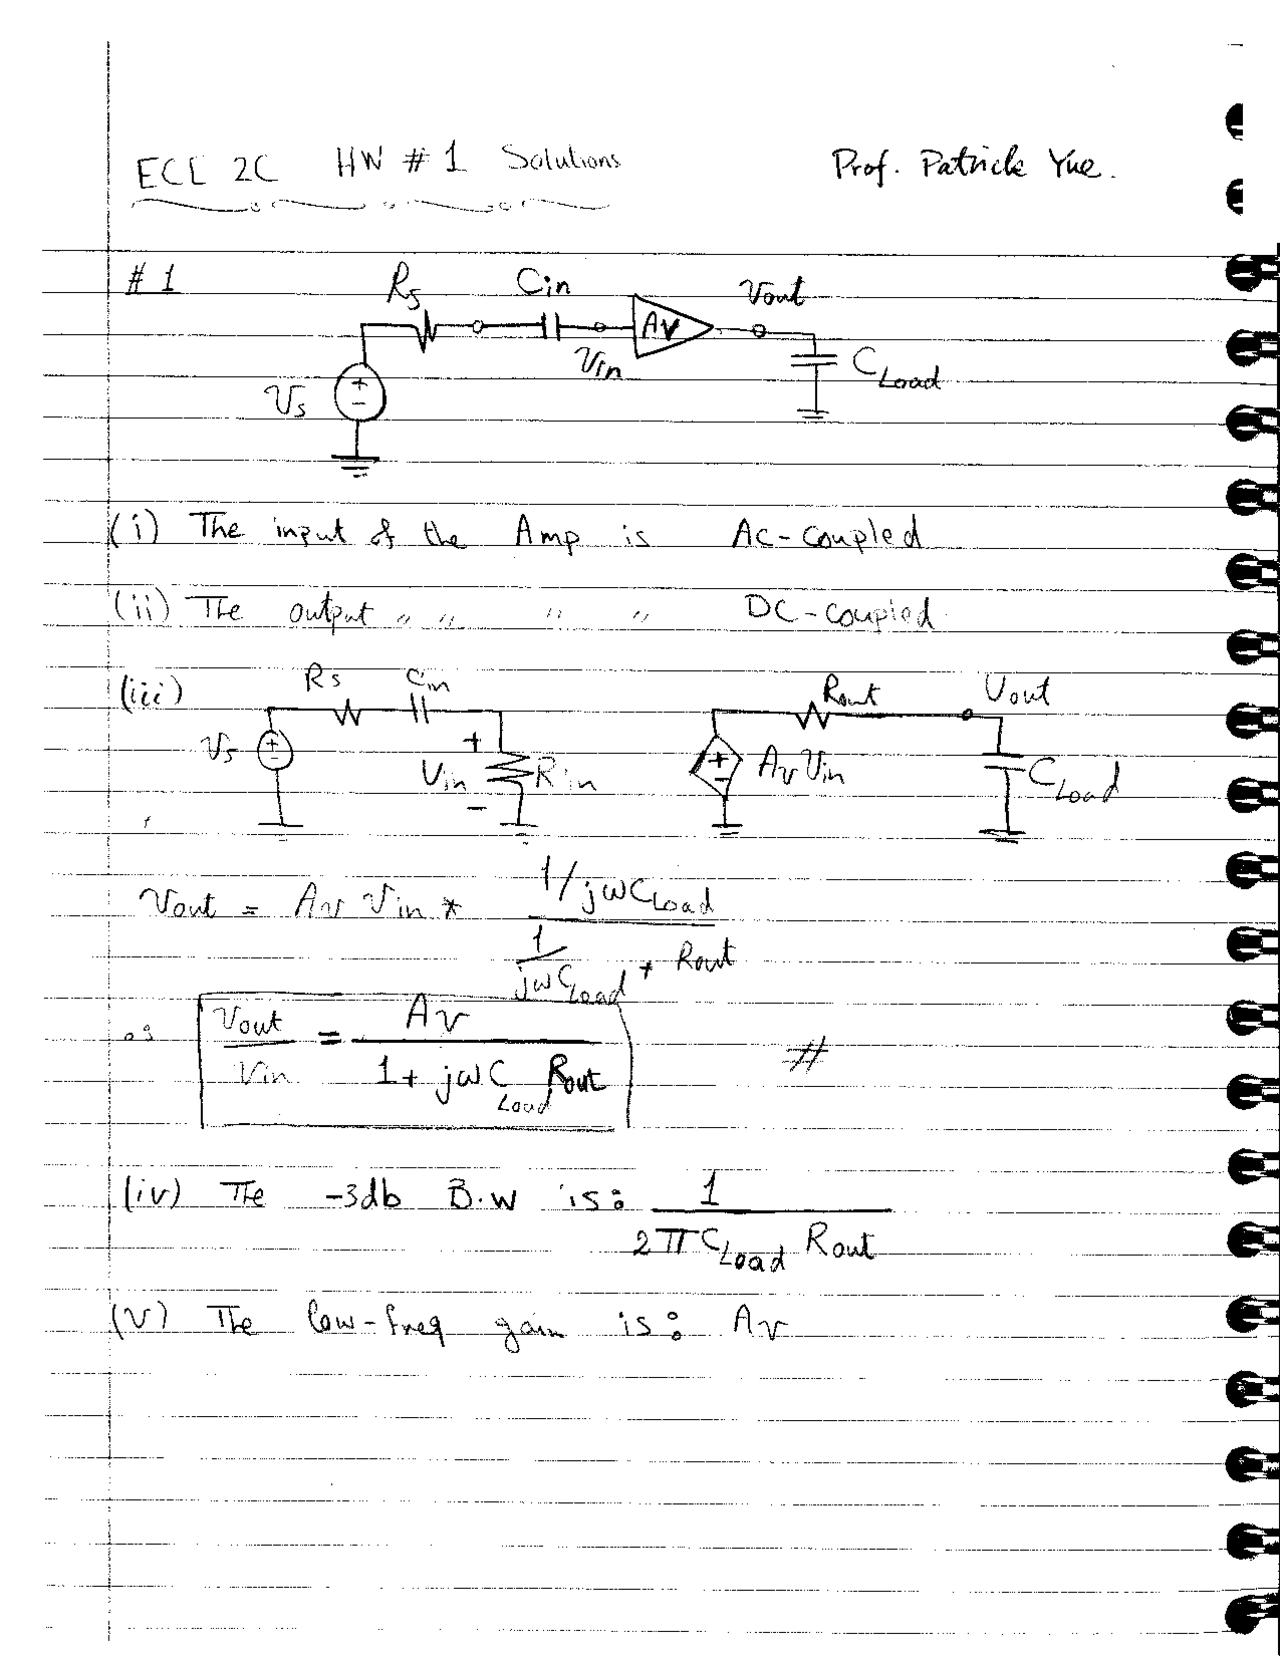 ECE 2C HW # 1 Solutions Prof. Patrick Yue.
# 1
Rs Cin Vout
Av
Vin
CLoad
Vs
+
−
(i) The input of the Amp is AC-coupled
(ii) The output " " " " DC-coupled
(iii)
Rs Cin Rout Vout
Vs + − + Vin − Rin + − Av Vin CLoad
Vout = Av Vin * 1/jωCLoad
1/jωCLoad + Rout
Vout/Vin = Av / 1 + jωCLoad Rout #
(iv) The -3db B.W is: 1
2πCLoad Rout
(v) The low-freq gain is: Av